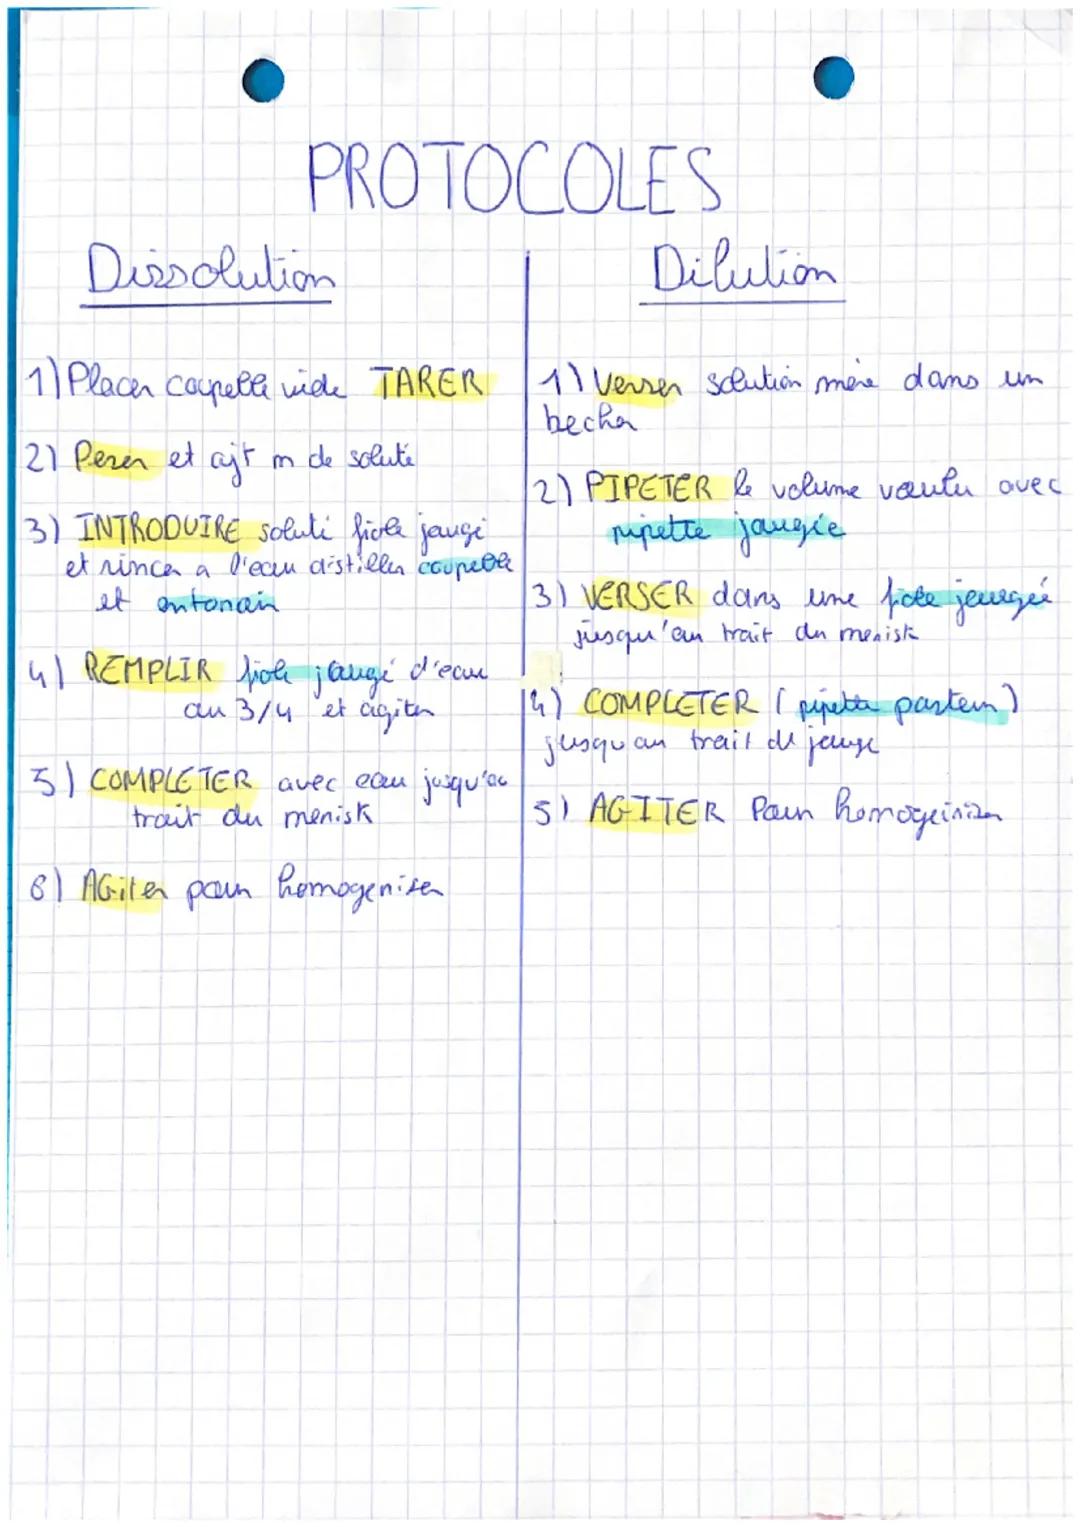 PROTOCOLES
Dissolution
1) Placer coupelle vide TARER
2) Peser et ajt m de soluté
3) INTRODUIRE soluté fiole jaugé
et rincer a l'eau distiller coupelle
et entonoir
4) REMPLIR fiole jaugé d'eau
au 3/4 et agiter
5) COMPLETER avec eau jusqu'au
trait du menisk
6) AGiter pour homogeniser
Dilution
1) Verser solution mère dans un
becher
2) PIPETER le volume voulu avec
pipette jaugée
3) VERSER dans une fiole jaugée
jusqu'au trait du menisk
4) COMPLETER (pipette pasteur)
jusqu'au trait de jauge
5) AGITER Pour homogeiniser